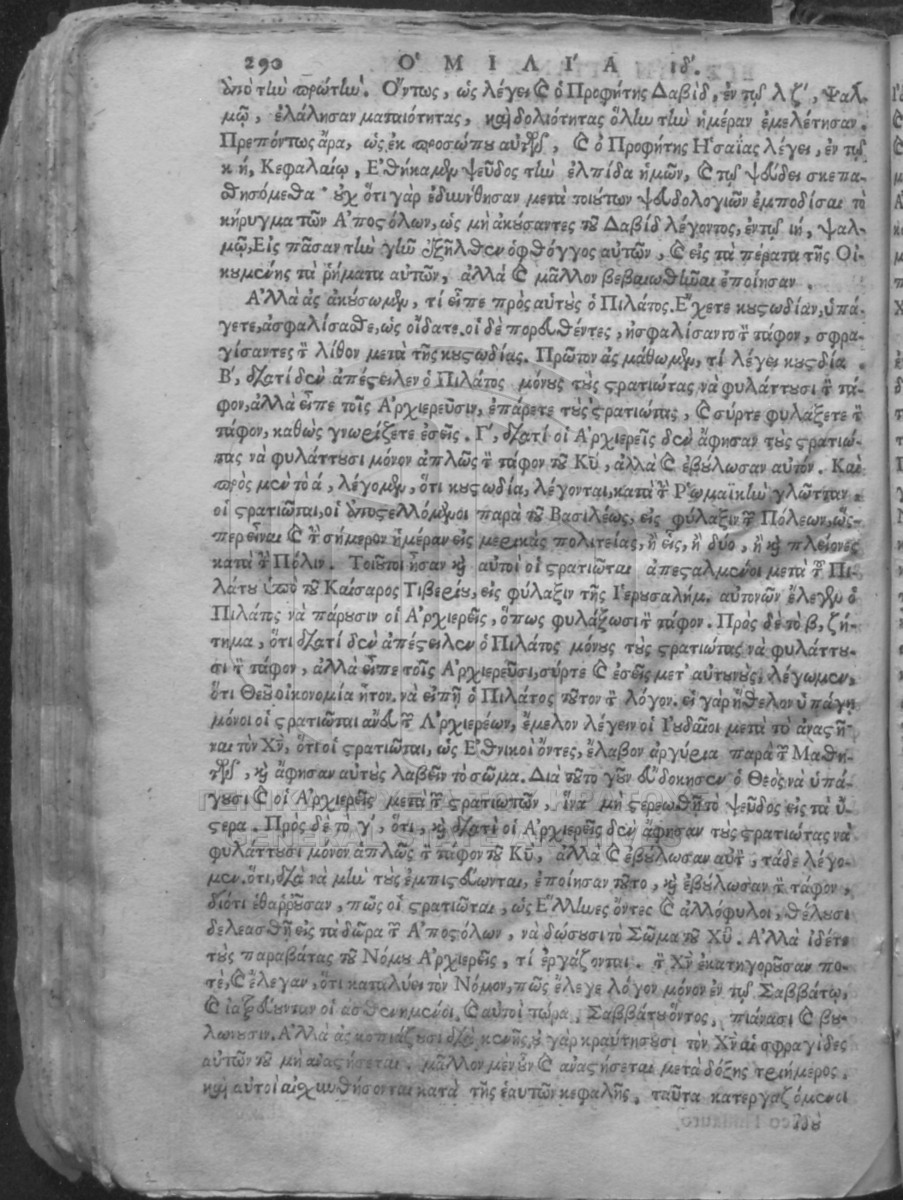 290 Ο ΜΙΛΙ´Α ιδ´.
ὑπὸ τὴν πρώτην. Ο῎ντως, ὡς λέγει καὶ ὁ Προφήτης Δαβὶδ, ἐν τῷ λζ´, Ψαλ-
μῷ, ἐλάλησαν ματαιότητας, καὶ δολιότητας ὅλην τὴν ἡμέραν ἐμελέτησαν.
Πρεπόντως ἄρα, ὡς ἐκ προσώπου αὐτῶν, καὶ ὁ Προφήτης Η᾽σαΐας λέγει, ἐν τῷ
κή, Κεφαλαίῳ, Ε᾽θήκαμεν ψεῦδος τὴν ἐλπίδα ἡμῶν, καὶ τῷ ψεύδει σκεπα-
σθησόμεθα· οὐχ ὅτι γὰρ ἐδυνήθησαν μετὰ τοιούτων ψευδολογιῶν ἐμποδίσαι τὸ
κήρυγμα τῶν Α᾽ποστόλων, ὡς μὴ ἀκούσαντες τοῦ Δαβὶδ λέγοντος, ἐν τῷ ιή, ψαλ-
μῷ, Εἰς πᾶσαν τὴν γῆν ἐξῆλθεν ὁ φθόγγος αὐτῶν, καὶ εἰς τὰ πέρατα τῆς Οἰ-
κουμένης τὰ ῥήματα αὐτῶν, ἀλλὰ καὶ μᾶλλον βεβαιωθῆναι ἐποίησαν.
Α᾽λλὰ ἂς ἀκούσωμεν, τί εἶπε πρὸς αὐτοὺς ὁ Πιλάτος. Ε῎χετε κουστωδίαν, ὑπά-
γετε, ἀσφαλίσασθε, ὡς οἴδατε. οἱ δὲ πορευθέντες, ἠσφαλίσαντο τὸν τάφον, σφρα-
γίσαντες τὸν λίθον μετὰ τῆς κουστωδίας. Πρῶτον ἂς μάθωμεν, τί λέγει κουστωδία.
Β´, διατί δὲν ἀπέστειλεν ὁ Πιλάτος μόνους τοὺς στρατιώτας νὰ φυλάττουσι τὸν τά-
φον, ἀλλὰ εἶπε τοῖς Α᾽ρχιερεῦσιν, ἐπάρετε τοὺς στρατιώτας, καὶ σύρτε φυλάξετε τὸν
τάφον, καθὼς γνωρίζετε ἐσεῖς. Γ´, διατί οἱ Α᾽ρχιερεῖς δὲν ἄφησαν τοὺς στρατιώ-
τας νὰ φυλάττουσι μόνον ἁπλῶς τὸν τάφον τοῦ Κῦ, ἀλλὰ καὶ ἐβούλωσαν αὐτόν. Καὶ
πρὸς μὲν τὸ ά, λέγομεν, ὅτι κουστωδία, λέγονται, κατὰ τὴν Ρ῾ωμαϊκὴν γλῶτταν,
οἱ στρατιῶται, οἱ ἀποστελλόμενοι παρὰ τοῦ Βασιλέως, εἰς φύλαξιν τῶν Πόλεων, ὥς-
περ εἶναι καὶ τὴν σήμερον ἡμέραν εἰς μερικὰς πολιτείας, ἢ εἷς, ἢ δύο, ἢ καὶ πλείονες
κατὰ τὴν Πόλιν. Τοιοῦτοι ἦσαν καὶ αὐτοὶ οἱ στρατιῶται ἀπεσταλμένοι μετὰ τοῦ Πι-
λάτου ὑπὸ τοῦ Καίσαρος Τιβερίου, εἰς φύλαξιν τῆς Ι῾ερουσαλήμ. αὐτουνῶν ἔλεγεν ὁ
Πιλάτος νὰ πάρουσιν οἱ Α᾽ρχιερεῖς, ὅπως φυλάξωσι τὸν τάφον. Πρὸς δὲ τὸ β, ζή-
τημα, ὅτι διατί δὲν ἀπέστειλεν ὁ Πιλάτος μόνους τοὺς στρατιώτας νὰ φυλάττου-
σι τὸν τάφον, ἀλλὰ εἶπε τοῖς Α᾽ρχιερεῦσι, σύρτε καὶ ἐσεῖς μετ᾽ αὐτουνούς, λέγωμεν,
ὅτι Θεοῦ οἰκονομία ἦτον. νὰ εἰπῇ ὁ Πιλάτος τοῦτον τὸν λόγον. εἰ γὰρ ἤθελον ὑπάγῃ
μόνοι οἱ στρατιῶται ἄνευ τῶν Α᾽ρχιερέων, ἔμελον λέγειν οἱ Ι᾽ουδαῖοι μετὰ τὸ ἀναστῆ-
ναι τὸν Χν̅, ὅτι οἱ στρατιῶται, ὡς Ε᾽θνικοὶ ὄντες, ἔλαβον ἀργύρια παρὰ τῶν Μαθη-
τῶν, καὶ ἄφησαν αὐτοὺς λαβεῖν τὸ σῶμα. Διὰ τοῦτο γοῦν εὐδόκησεν ὁ Θεὸς νὰ ὑπά-
γουσι καὶ οἱ Α᾽ρχιερεῖς μετὰ τῶν στρατιωτῶν, ἵνα μὴ στερεωθῇ τὸ ψεῦδος εἰς τὰ ὕ-
στερα. Πρὸς δὲ τὸ γ´, ὅτι, καὶ διατὶ οἱ Α᾽ρχιερεῖς δὲν ἄφησαν τοὺς στρατιώτας νὰ
φυλάττουσι μόνον ἁπλῶς τὸν τάφον τοῦ Κῦ, ἀλλὰ καὶ ἐβούλωσαν αὐτὸν, τάδε λέγο-
μεν. ὅτι, διὰ νὰ μὴν τοὺς ἐμπιστεύωνται, ἐποίησαν τοῦτο, καὶ ἐβούλωσαν τὸν τάφον,
διότι ἐθαῤῥοῦσαν, πῶς οἱ στρατιῶται, ὡς Ε῞λληνες ὄντες καὶ ἀλλόφυλοι, θέλουσι
δελεασθῆ εἰς τὰ δῶρα τῶν Α᾽ποστόλων, νὰ δώσουσι τὸ Σῶμα τοῦ Χῦ. Α᾽λλὰ ἰδέτε
τοὺς παραβάτας τοῦ Νόμου Α᾽ρχιερεῖς, τί ἐργάζονται. τὸν Χν̅ ἐκατηγοροῦσαν πο-
τὲ, καὶ ἔλεγαν, ὅτι καταλύει τὸν Νόμον, πῶς ἔλεγε λόγον μόνον ἐν τῷ Σαββάτῳ,
καὶ ἰατρεύονταν οἱ ἀσθενημένοι, καὶ αὐτοὶ τώρα, Σαββάτου ὄντος, πιάνασι καὶ βου-
λώνουσιν. Α᾽λλὰ ἂς κοπιάζουσι διὰ κενῆς, οὐ γὰρ κρατήσουσι τὸν Χν̅ αἱ σφραγίδες
αὐτῶν τοῦ μὴ ἀναστήσεται. μᾶλλον μὲν οὖν καὶ ἀναστήσεται μετὰ δόξης τριήμερος,
καὶ αὐτοὶ αἰσχυνθήσονται κατὰ τῆς ἑαυτῶν κεφαλῆς, ταῦτα κατεργαζόμενοι